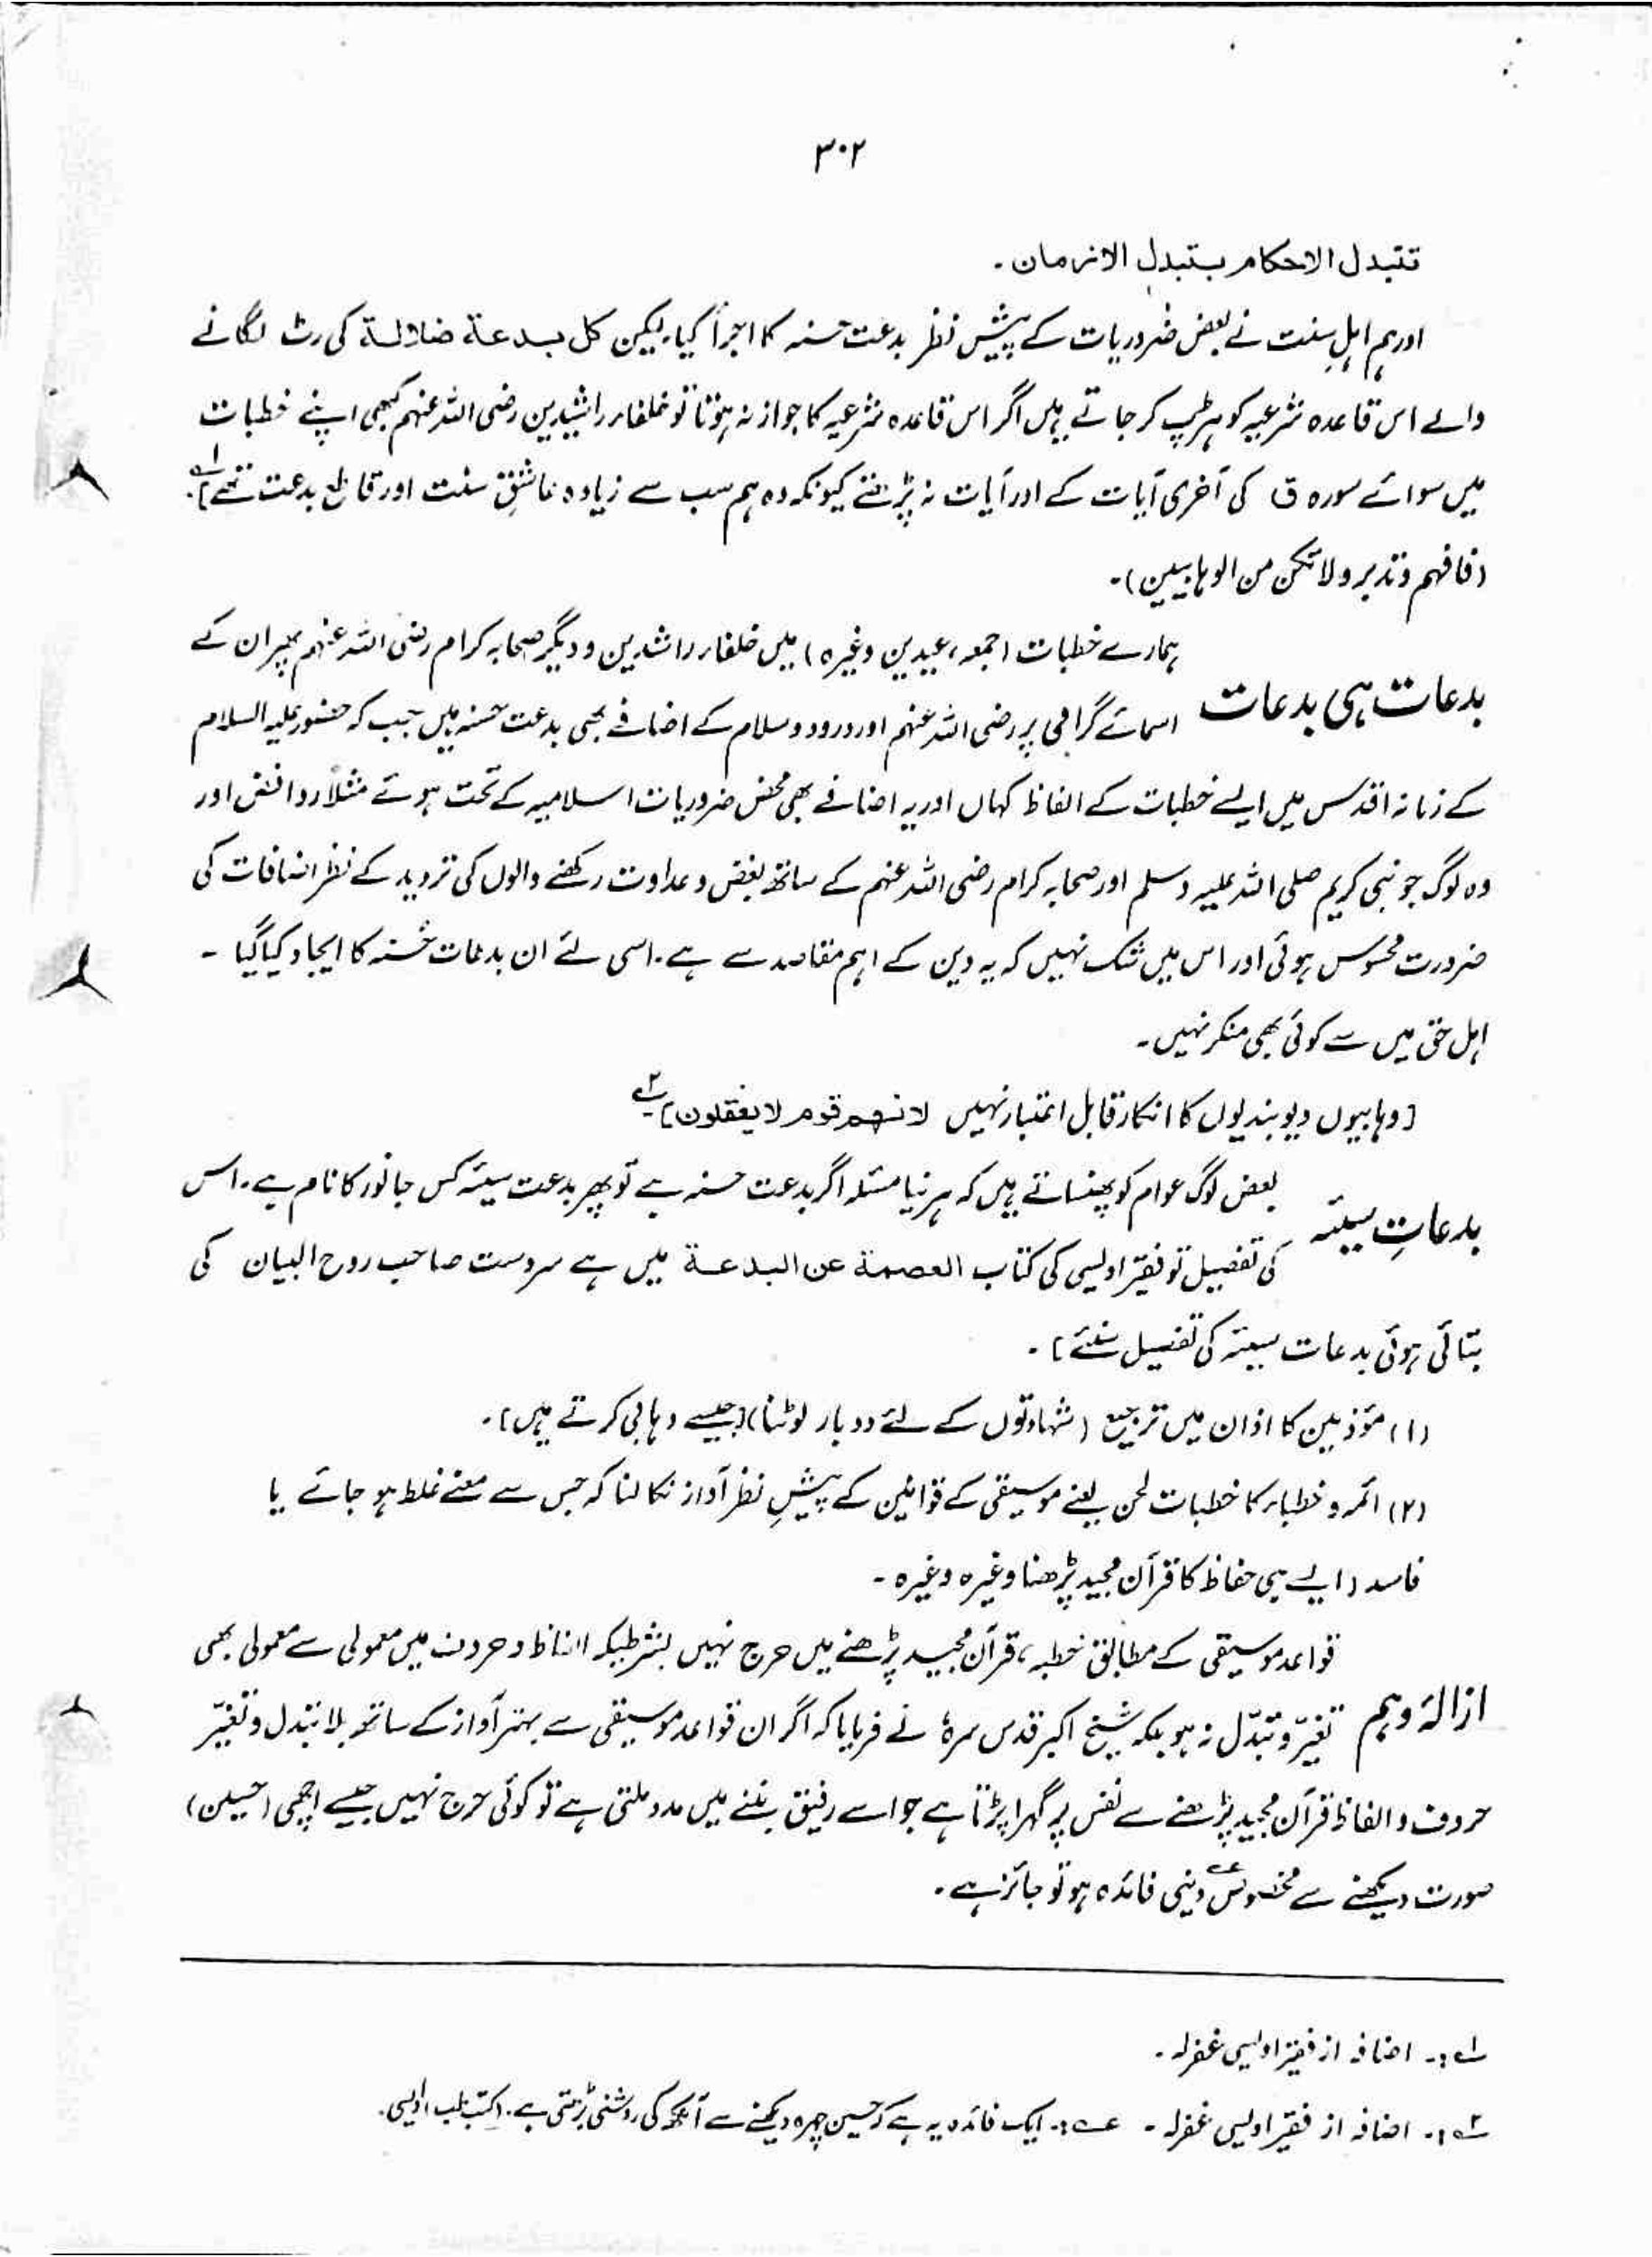 ۳۰۲
تتبدل الاحکام بتبدل الازمان۔
اور ہم اہلِ سنت نے بعض ضروریات کے پیش نظر بدعت حسنہ کا اجراُ کیا۔ لیکن کل بدعۃ ضلالۃ کی رٹ لگانے
والے اس قاعدہ شرعیہ کو ہڑپ کر جاتے ہیں اگر اس قاعدہ شرعیہ کا جواز نہ ہوتا تو خلفاء راشیدین رضی اللہ عنہم کبھی اپنے خطبات
میں سوائے سورہ ق کی آخری آیات کے اور آیات نہ پڑھتے کیونکہ وہ ہم سب سے زیادہ عاشقِ سنت اور قاطع بدعت تھے]۱؎۔
(فافہم وتدبر ولا تکن من الوہابیین)۔
ہمارے خطبات (جمعہ، عیدین وغیرہ) میں خلفاء راشدین و دیگر صحابہ کرام رضی اللہ عنہم پھر ان کے
بدعات ہی بدعات
اسمائے گرامی پر رضی اللہ عنہم اور درود وسلام کے اضافے بھی بدعت حسنہ ہیں جب کہ حضور علیہ السلام
کے زمانہ اقدس میں ایسے خطبات کے الفاظ کہاں اور یہ اضافے بھی محض ضروریات اسلامیہ کے تحت ہوئے مثلاً روافض اور
وہ لوگ جو نبی کریم صلی اللہ علیہ وسلم اور صحابہ کرام رضی اللہ عنہم کے ساتھ بغض و عداوت رکھنے والوں کی تردید کے نظر اضافات کی
ضرورت محسوس ہوئی اور اس میں شک نہیں کہ یہ دین کے اہم مقاصد سے ہے۔ اسی لئے ان بدعات حسنہ کا ایجاد کیا گیا ۔
اہل حق میں سے کوئی بھی منکر نہیں۔
[وہابیوں دیوبندیوں کا انکار قابل اعتبار نہیں لانھم قوم لا یعقلون]۲؎
بعض لوگ عوام کو پھنساتے ہیں کہ ہر نیا مسئلہ اگر بدعت حسنہ ہے تو پھر بدعت سیئہ کس جانور کا نام ہے۔ اس
بدعاتِ سیئہ
کی تفصیل تو فقیر اویسی کی کتاب العصمۃ عن البدعۃ میں ہے سردست صاحب روح البیان کی
بتائی ہوئی بدعات سیئہ کی تفصیل سنیئے]۔
(۱) مؤذنین کا اذان میں ترجیع (شہادتوں کے لئے دوبار لوٹنا) [جیسے وہابی کرتے ہیں]۔
(۲) ائمہ و خطباء کا خطبات لحن یعنے موسیقی کے قوانین کے پیشِ نظر آواز نکالنا کہ جس سے معنے غلط ہو جائے یا
فاسد (ایسے ہی حفاظ کا قرآن مجید پڑھنا وغیرہ وغیرہ ۔
قواعد موسیقی کے مطابق خطبہ، قرآن مجید پڑھنے میں حرج نہیں بشرطیکہ الفاظ و حروف میں معمولی سے معمولی بھی
ازالۂ وہم
تغیّر و تبدّل نہ ہو بلکہ شیخ اکبر قدس سرہٗ نے فرمایا کہ اگر ان قواعد موسیقی سے بہتر آواز کے ساتھ بلا تبدل و تغیّر
حروف و الفاظ قرآن مجید پڑھنے سے نفس پر گہرا پڑتا ہے جو اسے رفیق بننے میں مدد ملتی ہے تو کوئی حرج نہیں جیسے اچھی (حسین)
صورت دیکھنے سے مخصوص؏ دینی فائدہ ہو تو جائز ہے۔
۱؎:۔ اضافہ از فقیر اویسی غفرلہ ۔
۲؎:۔ اضافہ از فقیر اویسی غفرلہ ۔ ؏:۔ ایک فائدہ یہ ہے کہ حسین چہرہ دیکھنے سے آنکھ کی روشنی بڑھتی ہے۔ (کتب طب) اویسی۔